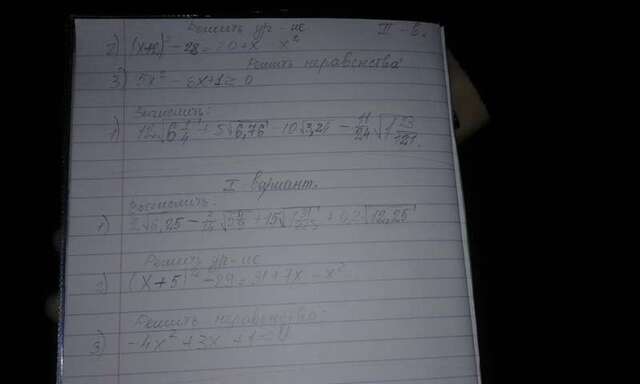 Решить ур-ие II - в.
2) (x+ )² - 28 = 20 + x x²
Решить неравенства
3) 5x² - 6x + 1 ≥ 0
Вычислить:
1) 12√6 1/4 + 5√6,76 - 10√3,24 - 11/24 √1 23/121
I вариант.
Вычислить:
1) √6,25 - + 15√ + 0,2√12,25
Решить ур-ие
2) (x+5)² - 29 = + 7x - x²
Решить неравенства:
3) -4x² + 3x + 1